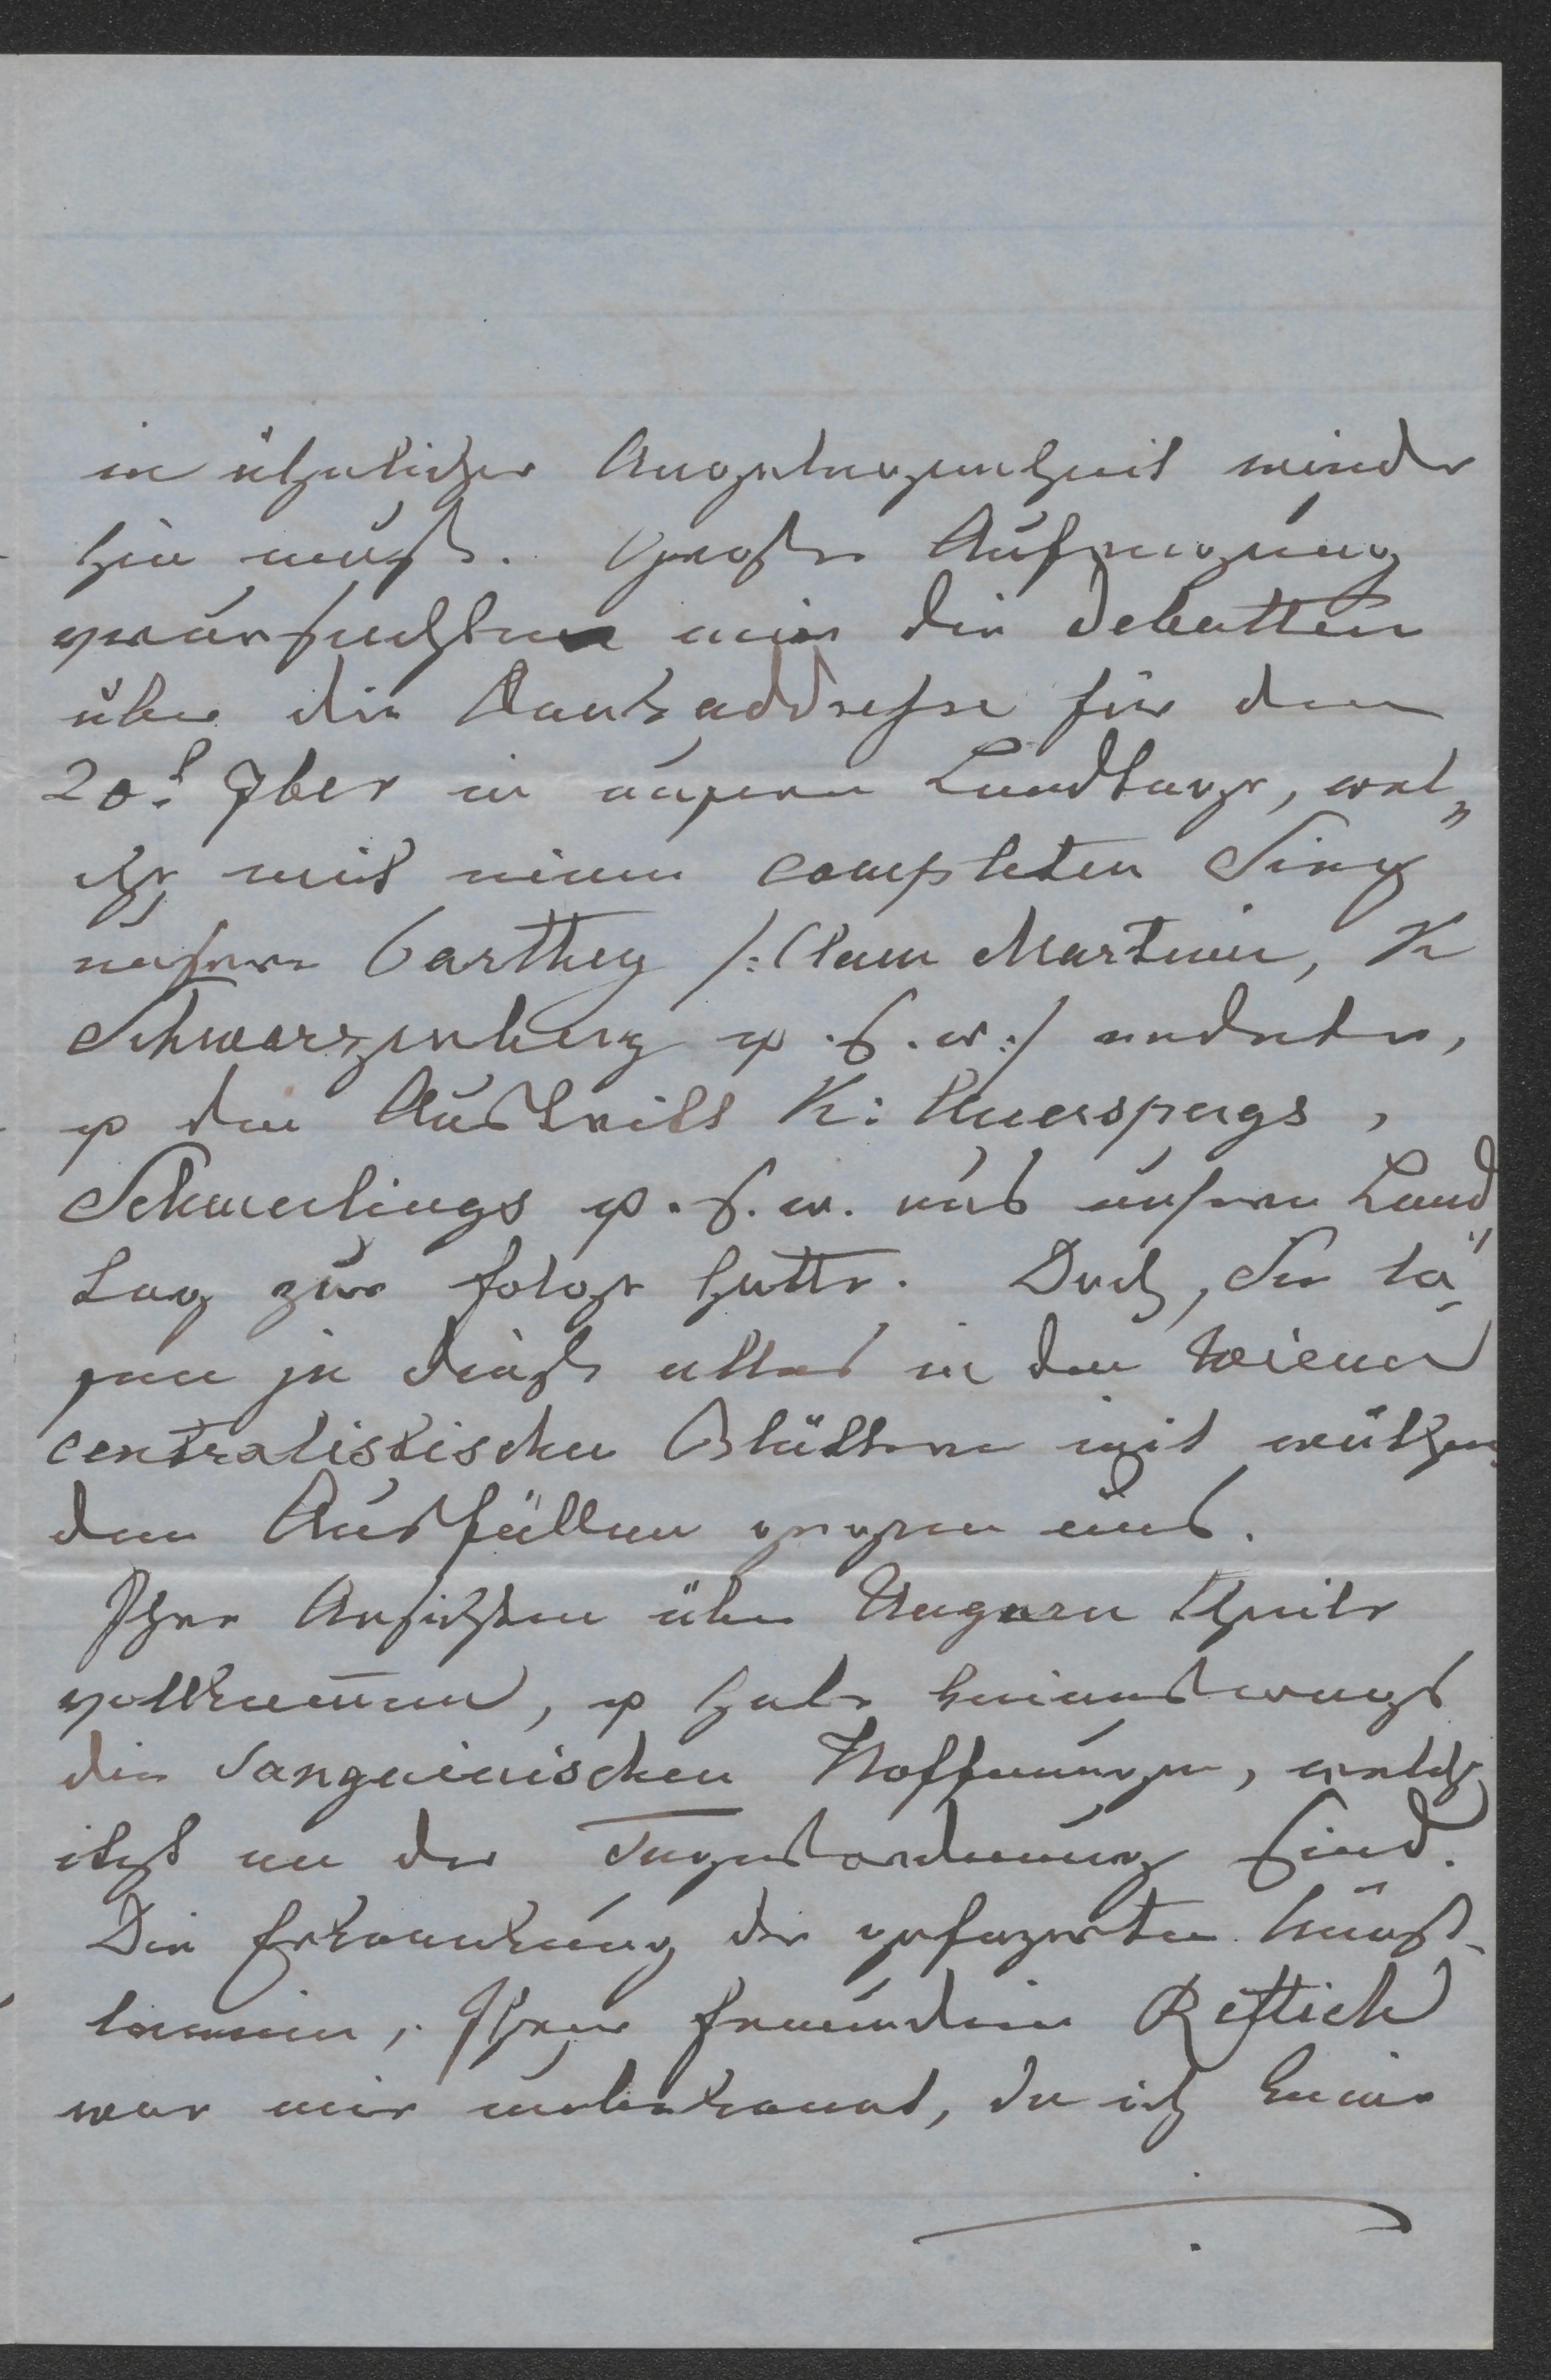 in ähnlicher Angelegenheit wieder
hin muß. Große Aufregung
verursachten mir die Debatten
über die Dankaddresse für den
20t 7ber in unserm Landtage, wel„
che mit einem completen Sieg
unserer Parthey /: Clam Martinic, K
Schwarzenberg u. s. w :/ endete,
u den Austritt K: Auerspergs,
Schmerlings u. s. w. aus unserm Land„
tag zur Folge hatte. Doch, Sie lä-
sen ja dieß alles in den Wiener
centralistischen Blättern mit wüthen
den Ausfällen gegen uns.
Ihre Ansichten über Ungarn theile
vollkommen, u habe keineswegs
die sanguinischen Hoffnungen, welche
itzt an der Tagesordnung sind.
Die Erkrankung der gefeyerten Künst-
lerinn, Ihrer Freundin Rettich
war mir unbekannt, da ich keine